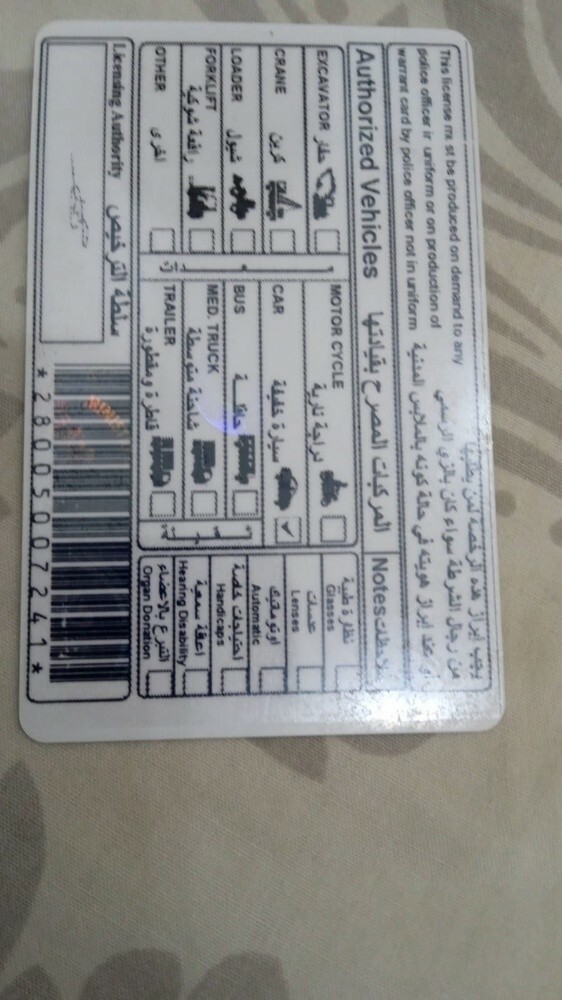 This license must be produced on demand to any
police officer in uniform or on production of
warrant card by police officer not in uniform
يجب ابراز هذه الرخصة لمن يطلبها
من رجال الشرطة سواء كان بالزي الرسمي
او عند ابراز هويته في حالة كونه بالملابس المدنية
Authorized Vehicles المركبات المصرح بقيادتها
Notes ملاحظات
EXCAVATOR حفار
MOTOR CYCLE
دراجة نارية
نظارة طبية
Glasses
CRANE كرين
CAR سيارة خفيفة
عدسات
Lenses
LOADER شيول
BUS حافلة
اوتوماتيك
Automatic
FORKLIFT
رافعة شوكية
MED. TRUCK
شاحنة متوسطة
احتياجات خاصة
Handicaps
OTHER اخرى
TRAILER
قاطرة ومقطورة
اعاقة سمعية
Hearing Disability
التبرع بالاعضاء
Organ Donation
Licensing Authority سلطة الترخيص
*28005007241*